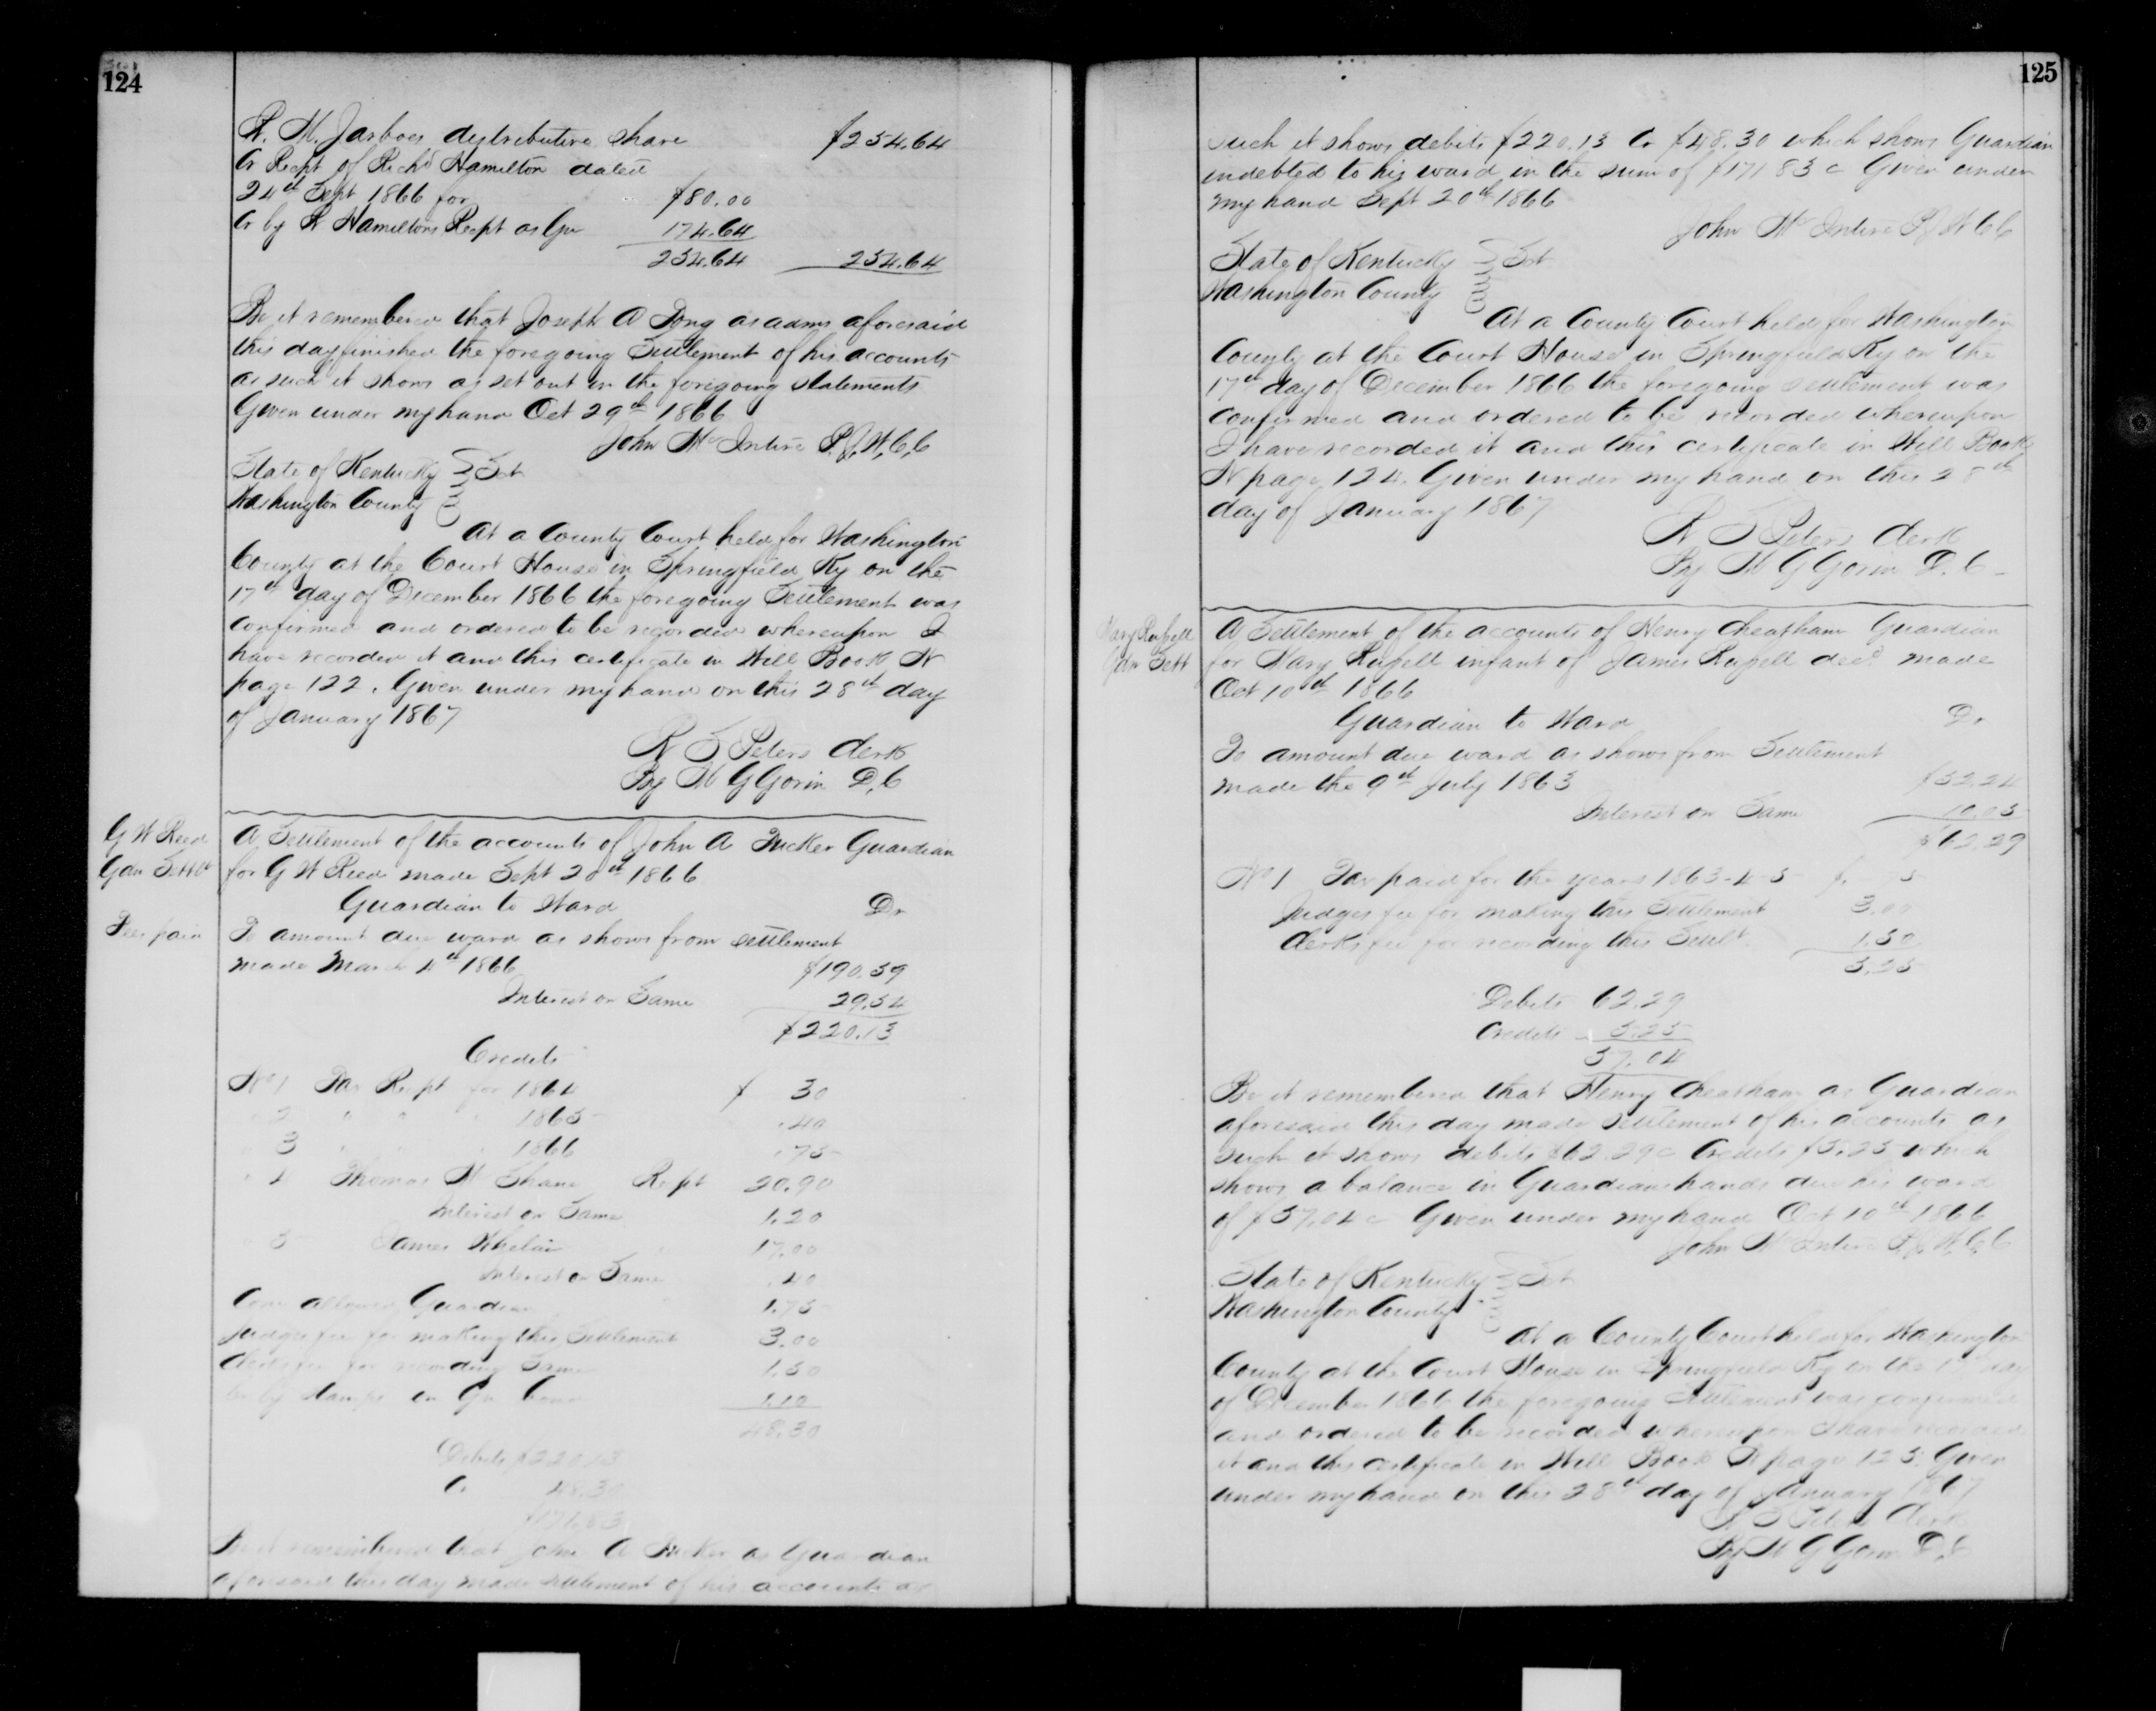 124
R. M. Jarboes distributive share $254.64
Cr Recpt of Richd Hamilton dated
24th Sept 1866 for $80.00
Cr by R Hamiltons Recpt as Gu 174.64
254.64 254.64
Be it remembered that Joseph A as admr aforesaid
this day finished the foregoing Settlement of his accounts
as such it shows as set out in the foregoing statements
Given under my hand Oct 29th 1866
John McIntire P.J.W.C.C
State of Kentucky Sct
Washington County
At a County Court held for Washington
County at the Court House in Springfield Ky on the
17th day of December 1866 the foregoing Settlement was
confirmed and ordered to be recorded whereupon I
have recorded it and this certificate in Will Book N
page 122. Given under my hand on this 28th day
of January 1867
Peters Clerk
By W G Gorin D.C
G W Reed
Gdn Settlt
A Settlement of the accounts of John A Tucker Guardian
for G W Reed made Sept 20th 1866
Guardian to Ward Dr
Fees paid
To amount due ward as shows from settlement
made March 4th 1866 $190.59
Interest on Same 29.54
$220.13
Credits
No 1 Tax Recpt for 1864 $ 30
" 2 " " " 1865 .40
" 3 " " " 1866 .75
" 4 Thomas Shane Recpt 20.90
Interest on Same 1.20
" 5 James Whelan 17.00
Interest on Same .40
Com allowed Guardian 1.75
Judges fee for making this Settlement 3.00
Clerks fee for recording Same 1.50
Cr by Stamps on Gu bond 1.10
48.30
Debits $220.13
Cr 48.30
$171.83
Be it remembered that John A Tucker as Guardian
aforesaid this day made settlement of his accounts as
125
such it shows debits $220.13 Cr $48.30 which shows Guardian
indebted to his ward in the sum of $171 83 c Given under
my hand Sept 20th 1866
John McIntire P.J.W.C.C
State of Kentucky Sct
Washington County
At a County Court held for Washington
County at the Court House in Springfield Ky on the
17th day of December 1866 the foregoing settlement was
confirmed and ordered to be recorded whereupon
I have recorded it and this certificate in Will Book
N page 124. Given under my hand on this 28th
day of January 1867
Peters Clerk
By W G Gorin D.C
Mary Russell
Gdn Sett
A Settlement of the accounts of Henry Cheatham Guardian
for Mary Russell infant of James Russell decd made
Oct 10th 1866
Guardian to Ward Dr
To amount due ward as shows from Settlement
made the 9th July 1863 $52.24
Interest on Same 10.05
$62.29
No 1 Tax paid for the years 1863-4-5 $.
Judges fee for making this Settlement 3.00
Clerks fee for recording this Settlt 1.50
5.25
Debits 62.29
Credits 5.25
57.04
Be it remembered that Henry Cheatham as Guardian
aforesaid this day made settlement of his accounts as
such it shows debits $62.29 c Credits $5.25 which
shows a balance in Guardians hands due his ward
of $57.04 c Given under my hand Oct 10th 1866
John McIntire P.J.W.C.C
State of Kentucky Sct
Washington County
At a County Court held for Washington
County at the Court House in Springfield Ky on the day
of December 1866 the foregoing Settlement was confirmed
and ordered to be recorded whereupon I have recorded
it and this certificate in Will Book N page 125. Given
under my hand on this 28th day of January 1867
Peters Clerk
By W G Gorin D.C